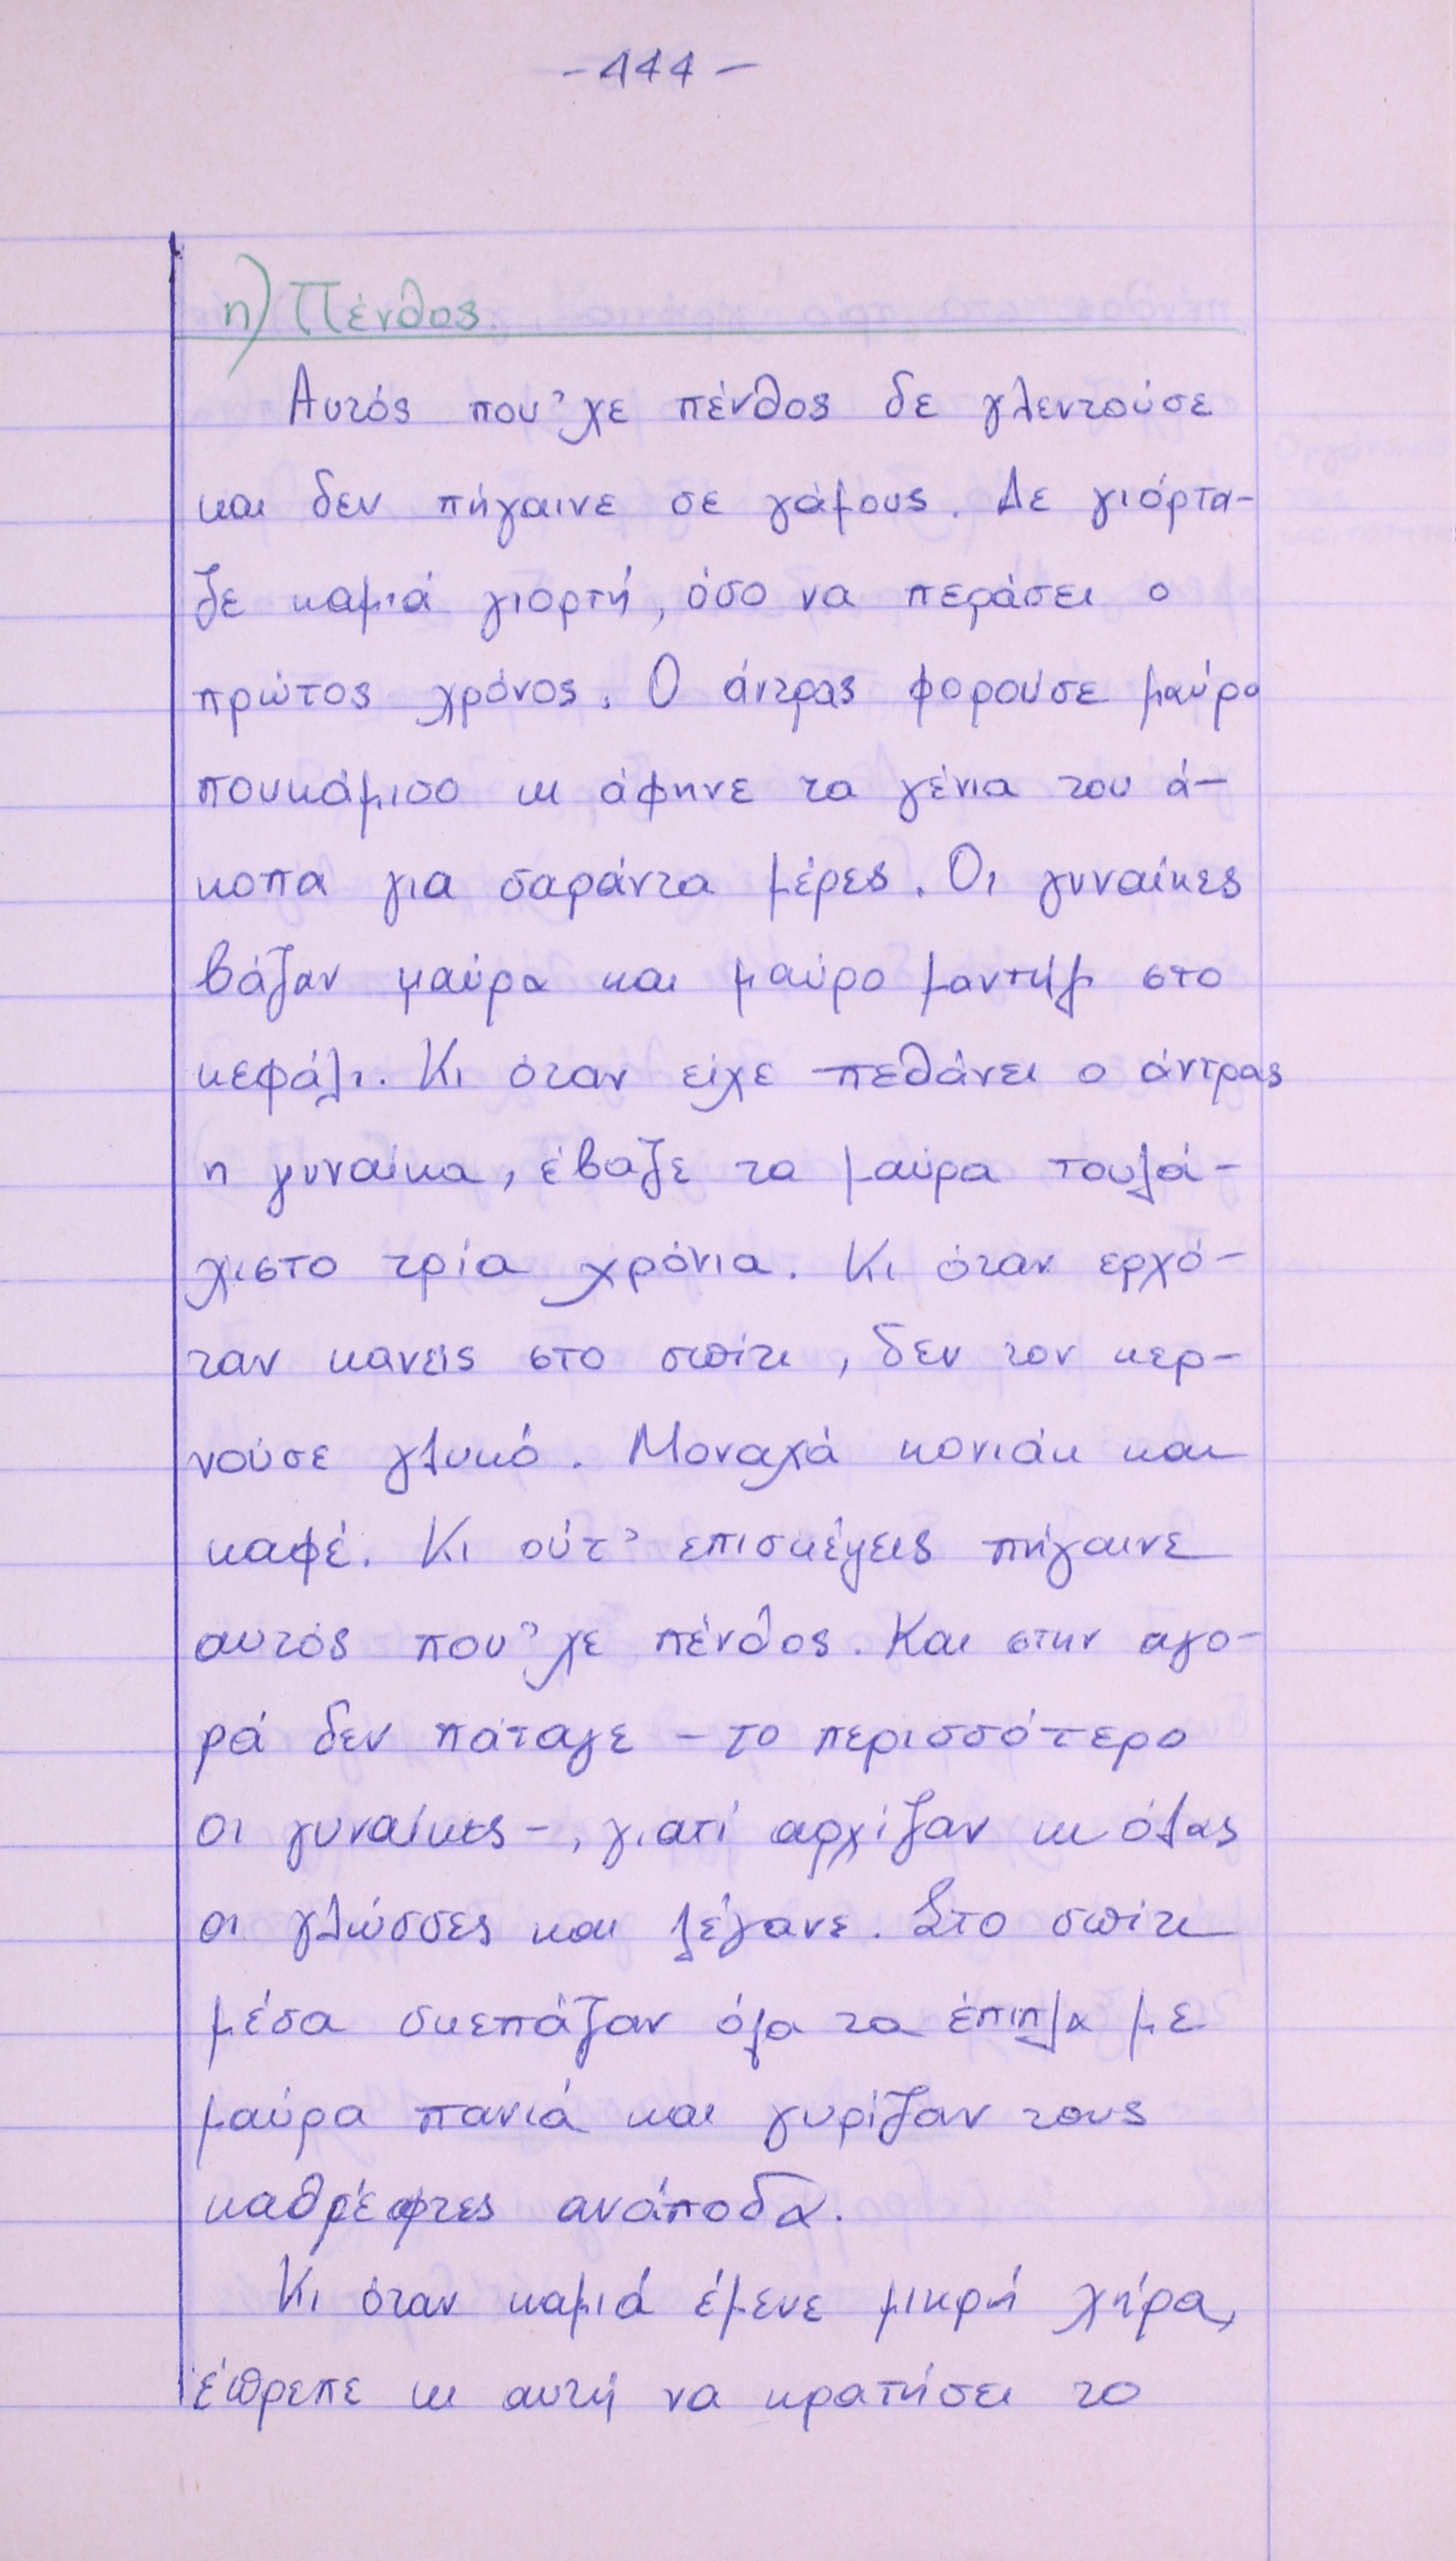 -444-
η) Πένθος.
Αυτός που 'χε πένθος δε γλεντούσε
και δεν πήγαινε σε γάμους. Δε γιόρτα-
ζε καμιά γιορτή, όσο να περάσει ο
πρώτος χρόνος. Ο άντρας φορούσε μαύρο
πουκάμισο κι άφηνε τα γένια του ά-
κοπα για σαράντα μέρες. Οι γυναίκες
βάζαν μαύρα και μαύρο μαντήλι στο
κεφάλι. Κι όταν είχε πεθάνει ο άντρας
η γυναίκα, έβαζε τα μαύρα τουλά-
χιστο τρία χρόνια. Κι όταν ερχό-
ταν κανείς στο σπίτι, δεν τον κερ-
νούσε γλυκό. Μοναχά κονιάκ και
καφέ. Κι ούτ' επισκέψεις πήγαινε
αυτός που 'χε πένθος. Και στην αγο-
ρά δεν πάταγε - το περισσότερο
οι γυναίκες -, γιατί αρχίζαν κι όλας
οι γλώσσες και λέγανε. Στο σπίτι
μέσα σκεπάζαν όλα τα έπιπλα με
μαύρα πανιά και γυρίζαν τους
καθρέφτες ανάποδα.
Κι όταν καμιά έμενε μικρή χήρα,
έπρεπε κι αυτή να κρατήσει το